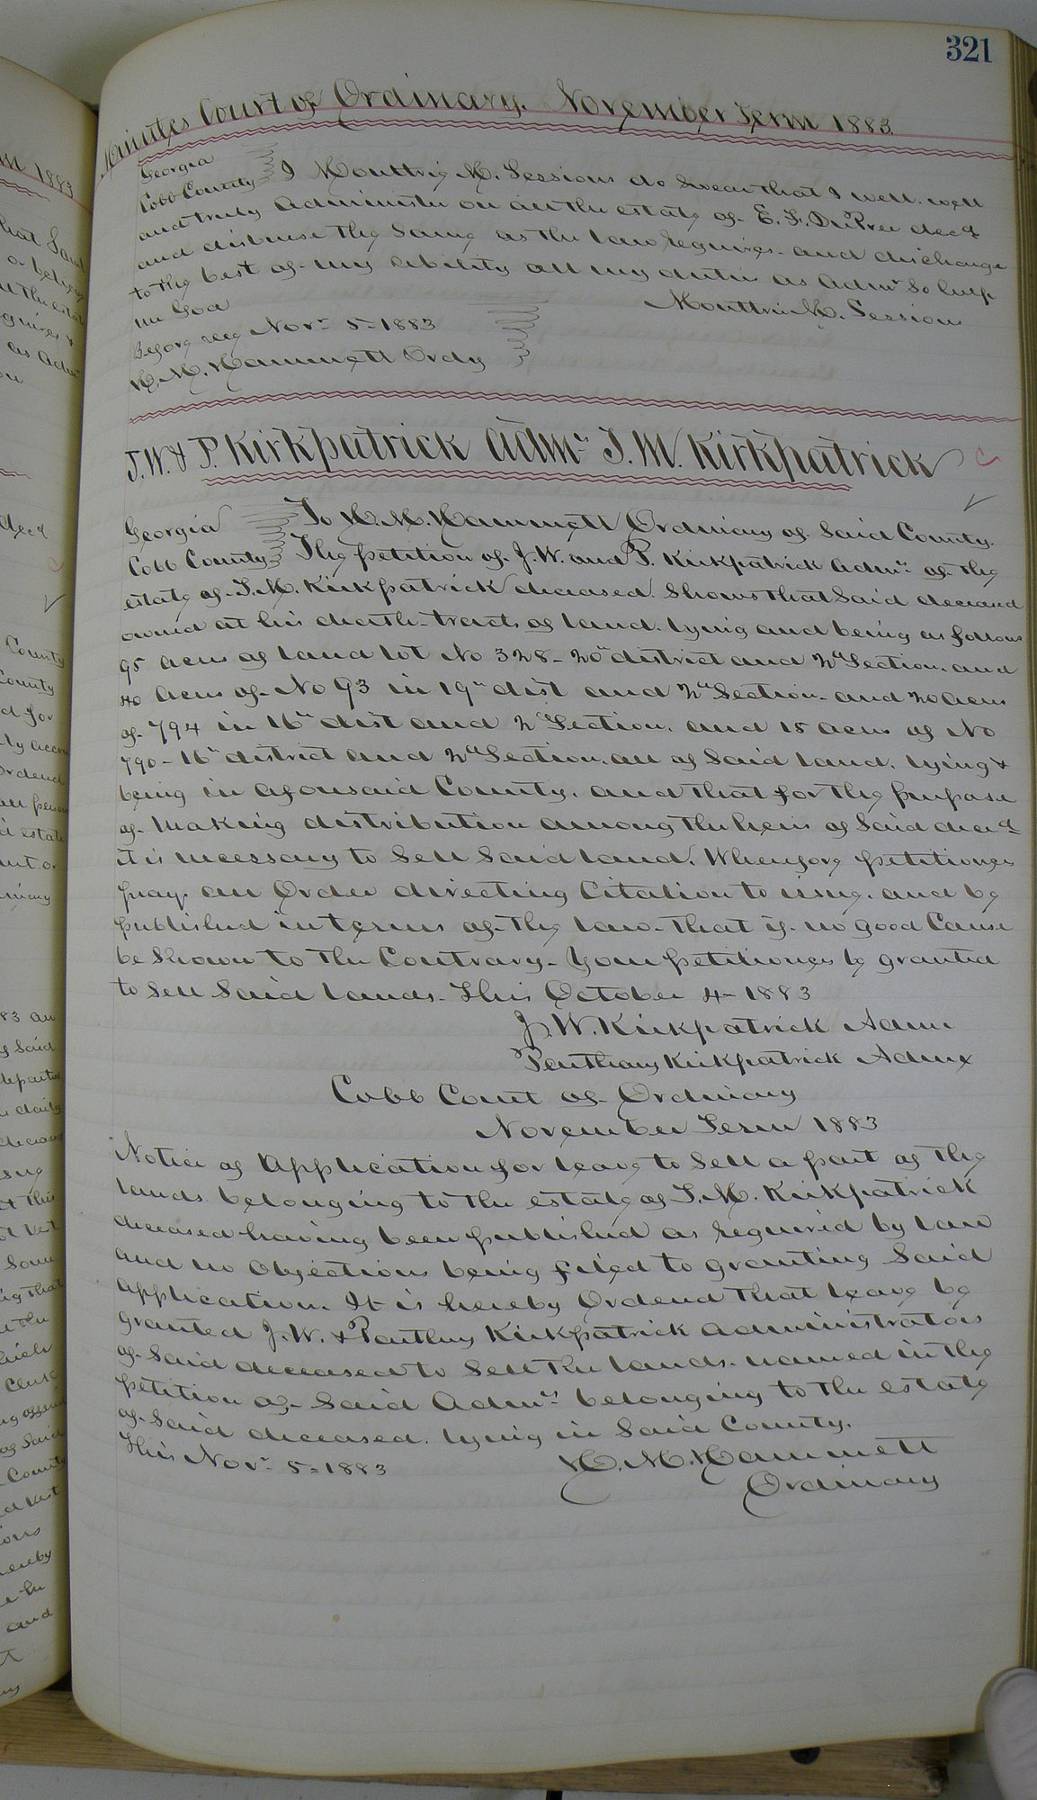 321
Minutes Court of Ordinary. November Term 1883
Georgia
Cobb County I Mouttrie M. Sessions do swear that I will well
and truly administer on all the estate of E. F. DuPree decd
and disburse the same as the law requires. and discharge
to the best of my ability all my duties as Admr So help
me God
Mouttrie M. Sessions
Before me Novr 5- 1883
H. M. Hammett Ordy
J. W. & P. Kirkpatrick Admrs J. M. Kirkpatrick
Georgia To H. M. Hammett Ordinary of Said County.
Cobb County The petition of J. W. and P. Kirkpatrick Admrs of the
estate of J. M. Kirkpatrick deceased. Shows that Said deceased
owned at his death tracts of land. lying and being as follows
95 acres of land lot No 328- 20th district and 2nd Section. and
40 acres of No 93 in 19th dist and 2nd Section- and 20 acres
of 794 in 16th dist and 2nd Section. and 15 acres of No
790- 16th district and 2nd Section. all of Said land. lying &
being in aforesaid County. and that for the purpose
of making distribution among the heirs of Said decd
it is necessary to Sell Said land. Wherefore petitioners
pray. an Order directing Citation to issue. and be
published in terms of the law. that if no good Cause
be Shown to the Contrary- Your petitioners be granted
to Sell Said lands. This October 4- 1883
J. W. Kirkpatrick Admr
Penthany Kirkpatrick Admx
Cobb Court of Ordinary
November Term 1883
Notice of Application for leave to Sell a part of the
lands. belonging to the estate of J. M. Kirkpatrick
deceased having been published as required by law
and no Objections being filed to granting Said
Application. It is hereby Ordered that leave be
granted J. W. & Penthny Kirkpatrick administrators
of Said deceased to Sell the lands. named in the
petition of Said Admrs belonging to the estate
of Said deceased. lying in Said County.
This Novr 5- 1883
H. M. Hammett
Ordinary